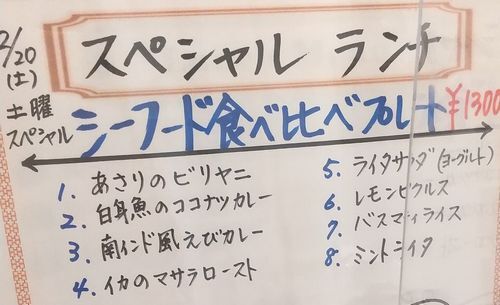 2/20
(土)
スペシャル ランチ
土曜
スペシャル
シーフード食べ比べプレート ¥1300
1. あさりのビリヤニ
2. 白身魚のココナツカレー
3. 南インド風えびカレー
4. イカのマサラロースト
5. ライタサラダ(ヨーグルト)
6. レモンピクルス
7. バスマティライス
8. ミントライタ